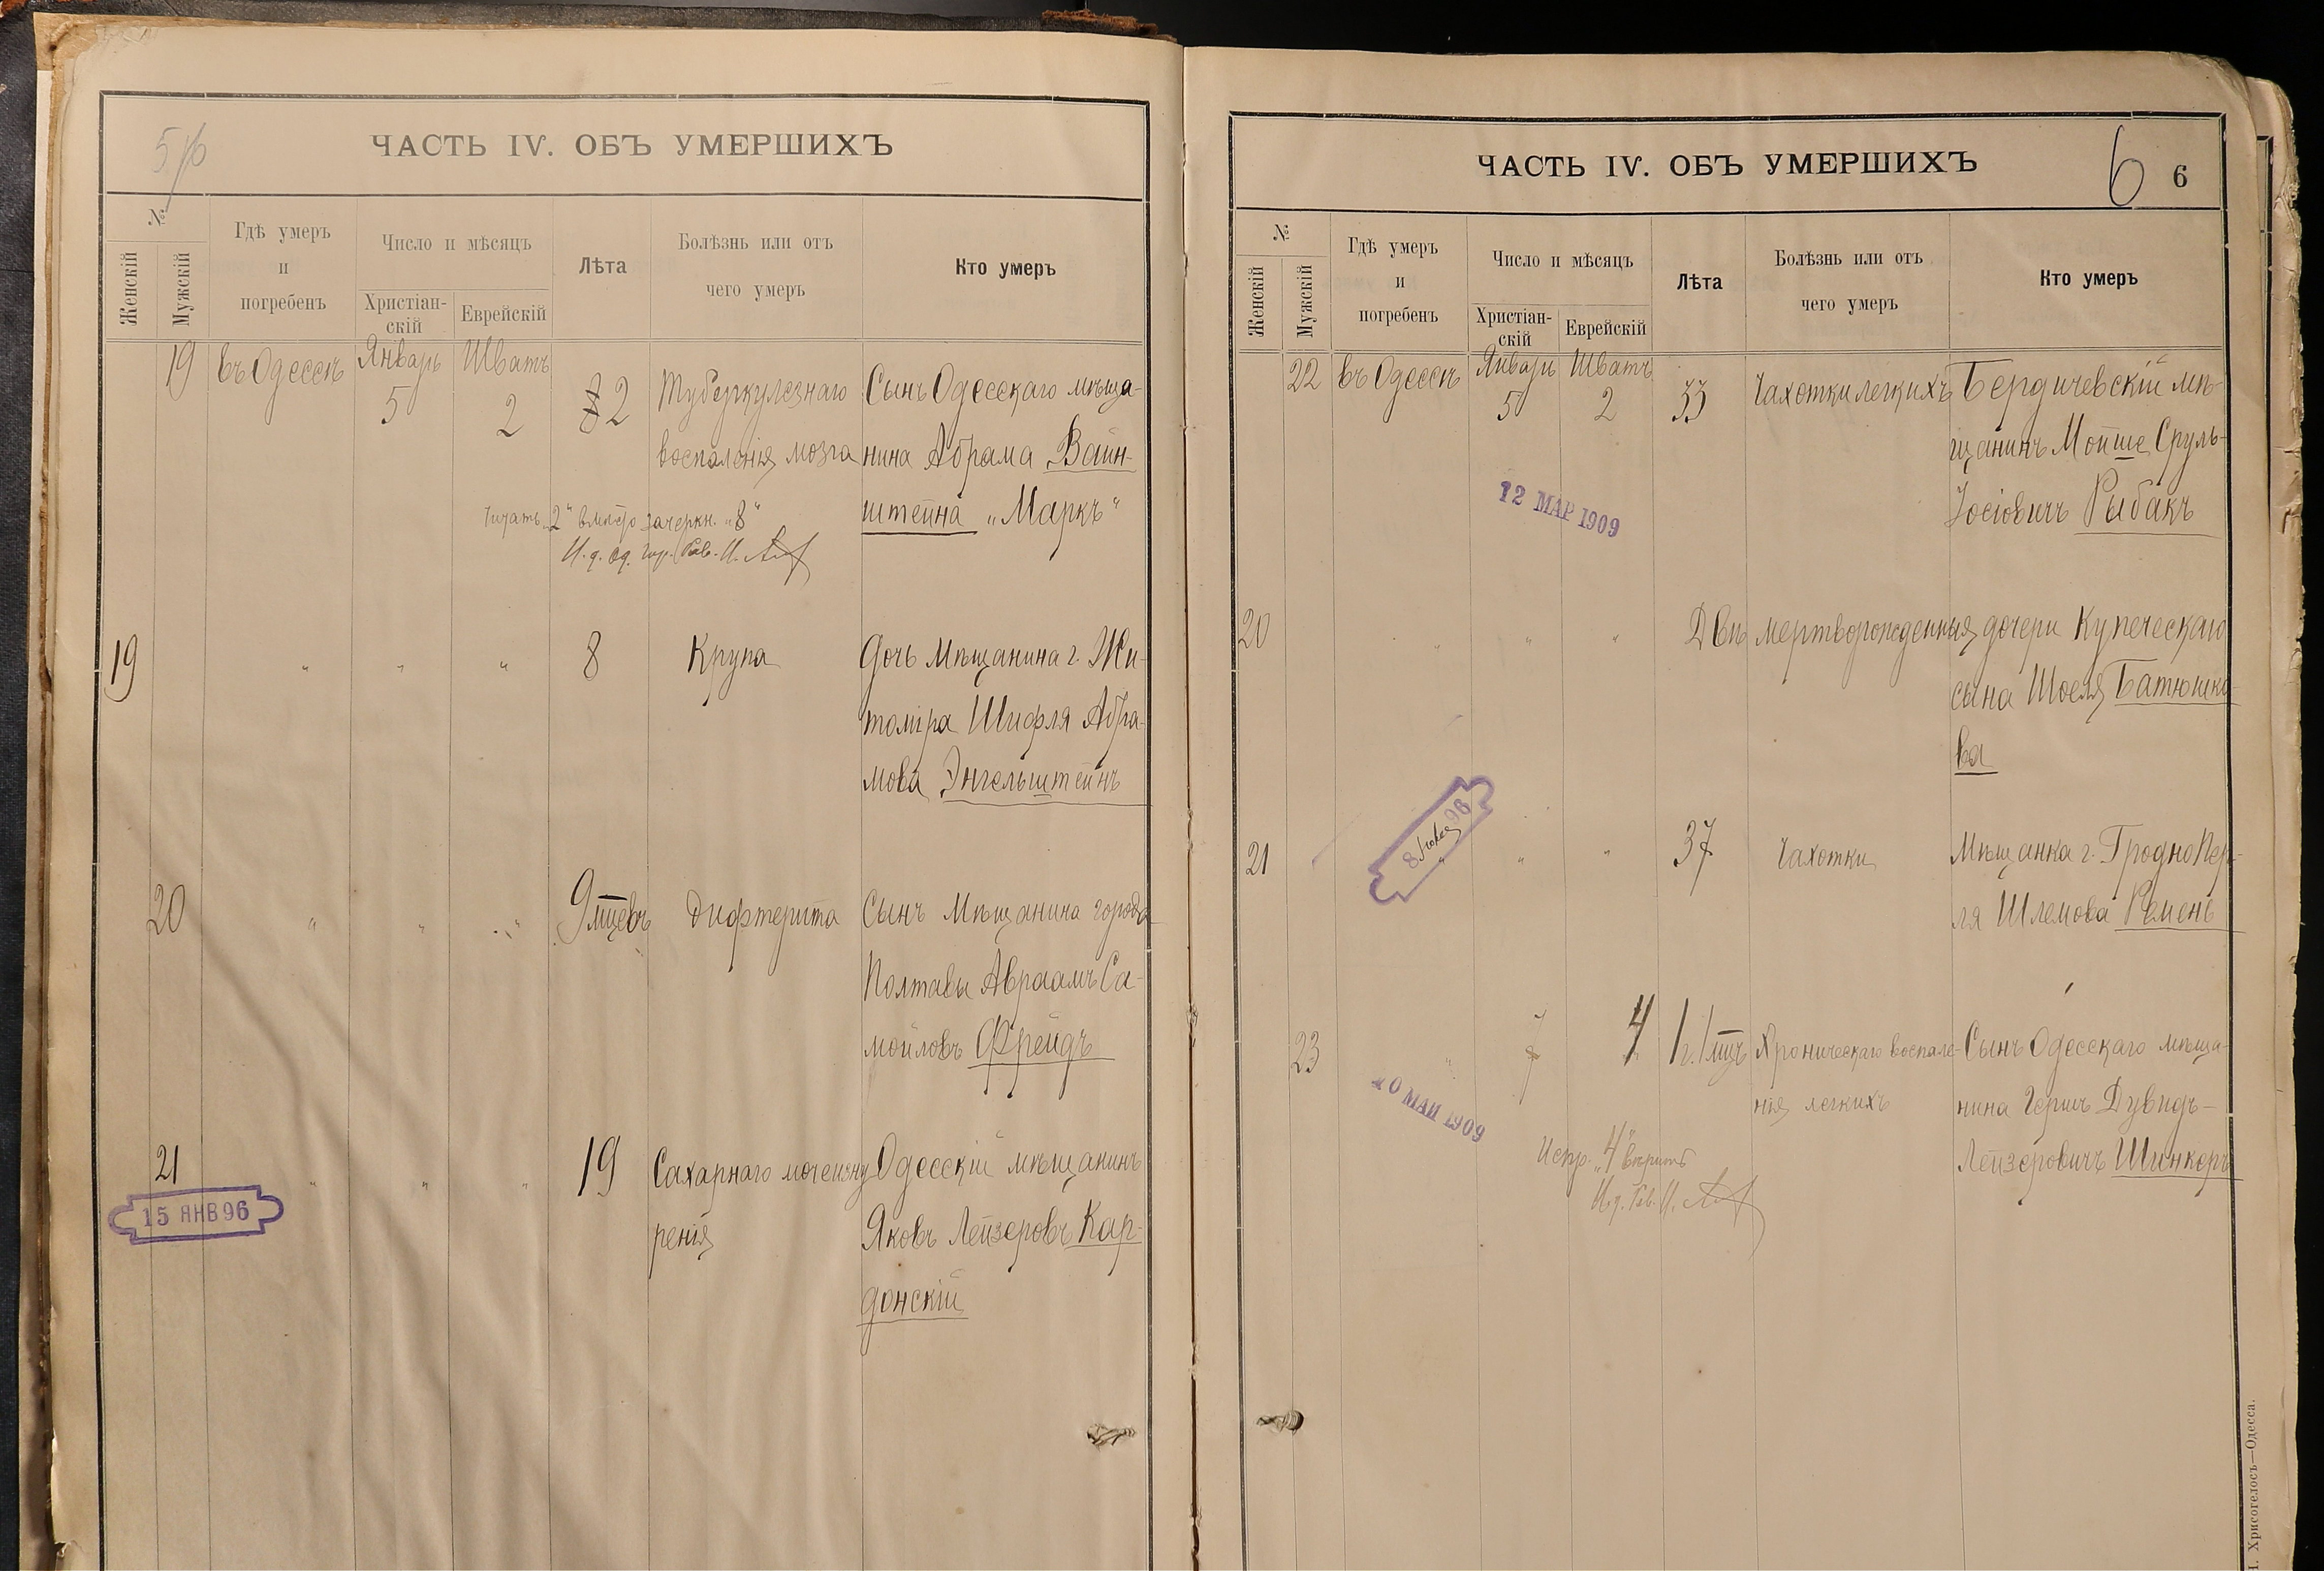 5/6
ЧАСТЬ IV. ОБЪ УМЕРШИХЪ
№
Женскій
Мужскій
Гдѣ умеръ
и
погребенъ
Число и мѣсяцъ
Христіан-
скій
Еврейскій
Лѣта
Болѣзнь или отъ
чего умеръ
Кто умеръ
19 въ Одессѣ Январь Шватъ
5 2 8 2 Туберкулезнаго Сынъ Одесскаго мѣща-
воспаленія мозга нина Абрама Вайн-
штейна „Маркъ“
Читать „2“ вмѣсто зачеркн. „8“
И. д. Од. Гор. Рав. И.
19 " " " 8 Крупа Дочь Мѣщанина г. Жи-
томіра Шифля Абра-
мова Энгельштейнъ
20 " " " 9 мцевъ Дифтерита Сынъ Мѣщанина города
Полтавы Авраамъ Са-
мойловъ Фрейдъ
21 " " " 19 Сахарнаго мочеизну Одесскій мѣщанинъ
ренія Яковъ Лейзеровъ Кар-
донскій
15 ЯНВ 96
ЧАСТЬ IV. ОБЪ УМЕРШИХЪ
6 6
№
Женскій
Мужскій
Гдѣ умеръ
и
погребенъ
Число и мѣсяцъ
Христіан-
скій
Еврейскій
Лѣта
Болѣзнь или отъ
чего умеръ
Кто умеръ
22 въ Одессѣ Январь Шватъ
5 2 33 Чахотки легкихъ Бердичевскій мѣ-
щанинъ Мойше Сруль-
Іосіовичъ Рыбакъ
12 МАР 1909
20 " " " Двѣ мертворожденныя дочери Купеческаго
сына Шоеля Батюшко-
ва
8 96
21 " " " 37 Чахотки Мѣщанка г. Гродно Пер-
ля Шлемова Ремень
23 " 7 4 1 г. 1 мцъ Хроническаго воспале- Сынъ Одесскаго мѣща-
нія легкихъ нина Гершъ Дувидъ-
Лейзеровичъ Шинкеръ
10 МАЙ 1909
Испр. „4“ вѣрить
И. д. Рав. И.
Хрисогелосъ—Одесса.